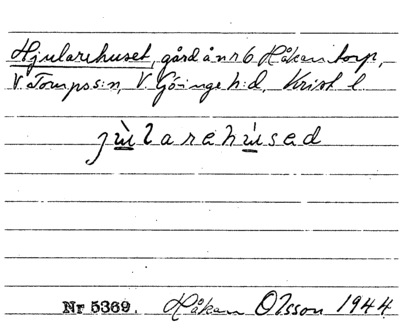 Hjularehuset, gård å nr 6 Håkantorp,
V. Torups s:n, V. Göinge h:d, Krist. l.
jùlarehúsed
Nr 5369. Håkan Olsson 1944